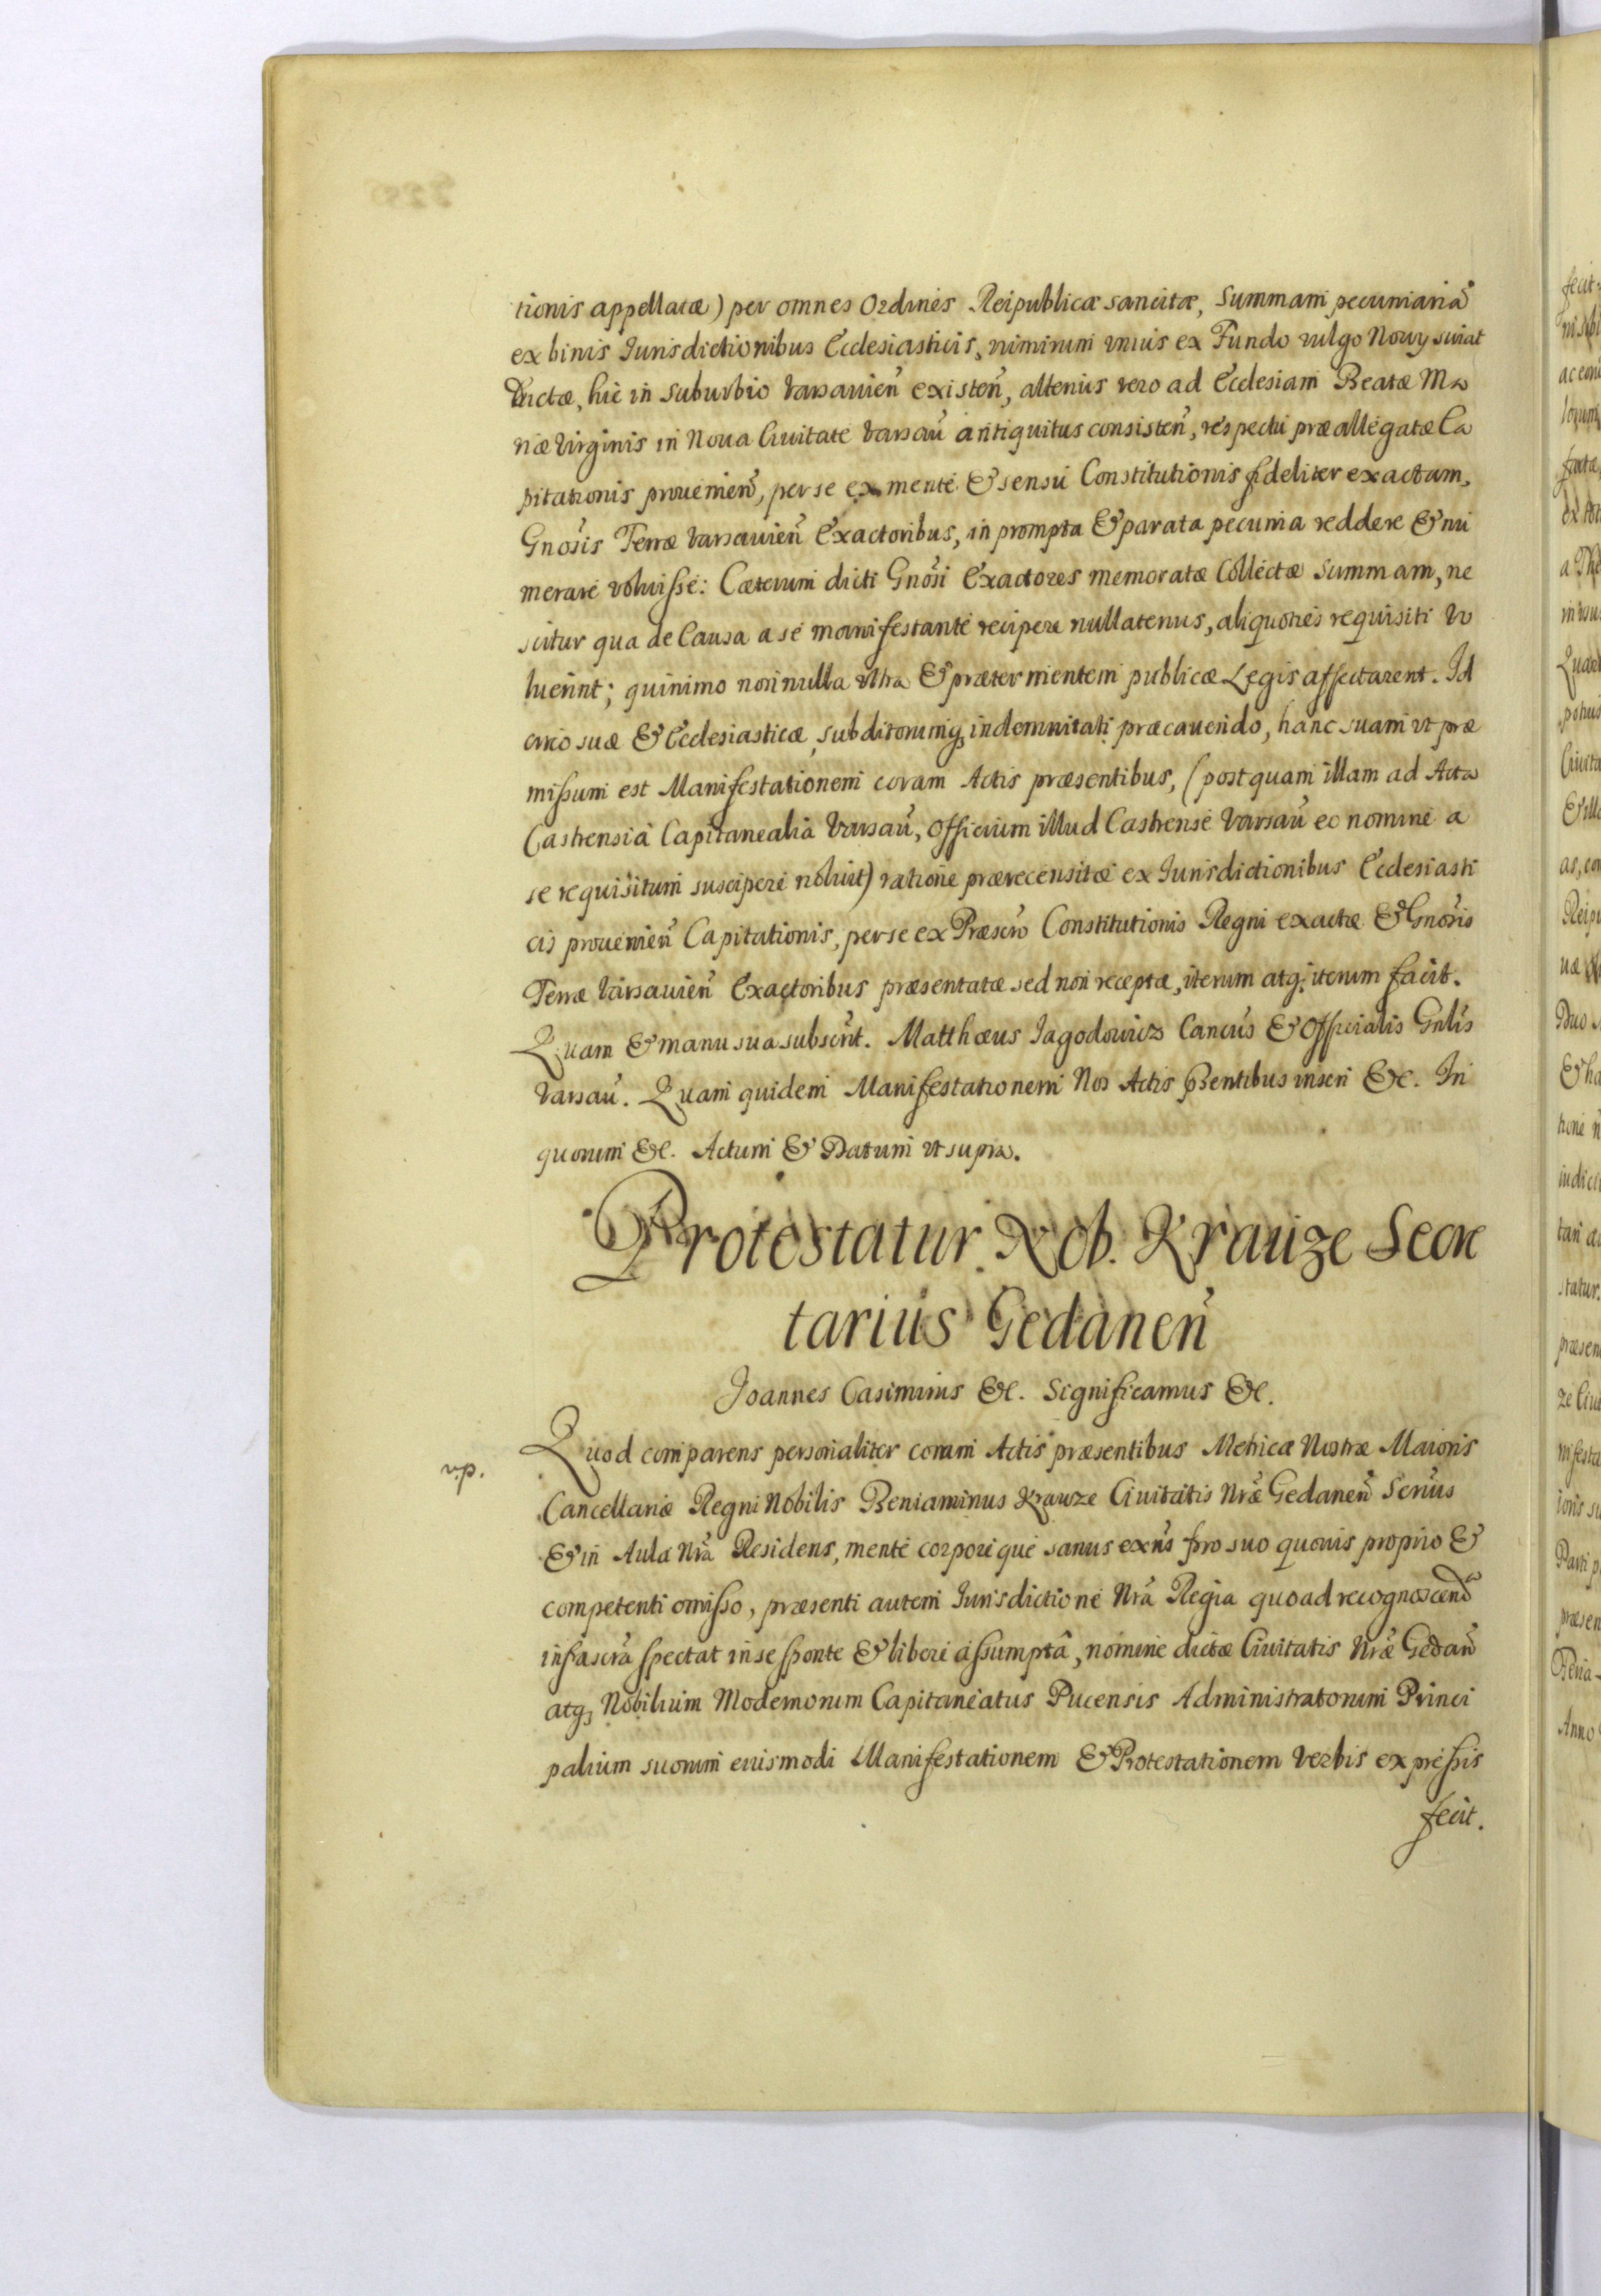 tionis appellatæ) per omnes Ordines Reipublicæ sancitæ, Summam pecuniariã
ex binis Iurisdictionibus Ecclesiasticis, nimirum unius ex Fundo vulgo Nowy swiat
dictæ, hic in Suburbio Varsavien̄ existen̄, alterius vero ad Ecclesiam Beatæ Ma
riæ Virginis in Noua Ciuitate Varsau̅ antiquitus consisten̄, respectu præallegatæ Ca
pitationis prouenien̄, per se ex mente & sensu Constitutionis fideliter exactam,
Gnosis Terræ Varsauien̄ Exactoribus, in prompta & parata pecunia reddere & nu
merare voluisse: Cæterum dicti Gnosi Exactores memoratæ Collectæ Summam, ne
scitur qua de Causa a se manifestante recipere nullatenus, aliquoties requisiti vo
luerint; quinimo nonnulla ultra & præter mentem publicæ Legis affectarent. Id
circo suæ & Ecclesiasticæ, subditorumq indemnitati præcauendo, hanc suam ut præ
missum est Manifestationem coram Actis præsentibus, (postquam illam ad Acta
Castrensia Capitanealia Varsau̅, Officium illud Castrense Varsau̅ eo nomine a
se requisitum suscipere noluit) ratione præreceńsitæ ex Iurisdictionibus Ecclesiasti
cis prouenien̄ Capitationis, per se ex Præscro Constitutionis Regni exactæ & Gnosis
Terræ Varsauien̄ Exactoribus præsentatæ sed non receptæ, iterum atq; iterum facit.
Quam & manu sua subscrit. Matthæus Jagodowicz Cancus & Officialis Gnlis
Varsau̅. Quam quidem Manifestationem Nos Actis pn̄tibus inseri &c. In
quorum &c. Actum & Datum ut supra.
Protestatur Nob. Krauze Secre
tarius Gedanen̄
Joannes Casimirus &c. Significamus &c.
v.p.
Quod comparens personaliter coram Actis præsentibus Metricæ Nostræ Maioris
Cancellariæ Regni Nobilis Beniaminus Krauze Ciuitatis Nræ Gedanen̄ Secrius
& in Aula Nra Residens, mente corporeque sanus exn̄s foro suo quouis proprio &
competenti omisso, præsenti autem Iurisdictione Nra Regia quoad recognoscenda
infrascra spectat in se sponte & libere assumptâ, nomine dictæ Ciuitatis Nræ Gedan̄
atq Nobilium Modernorum Capitaneatus Pucensis Administratorum Princi
palium suorum eiusmodi Manifestationem & Protestationem verbis expressis
fecit.